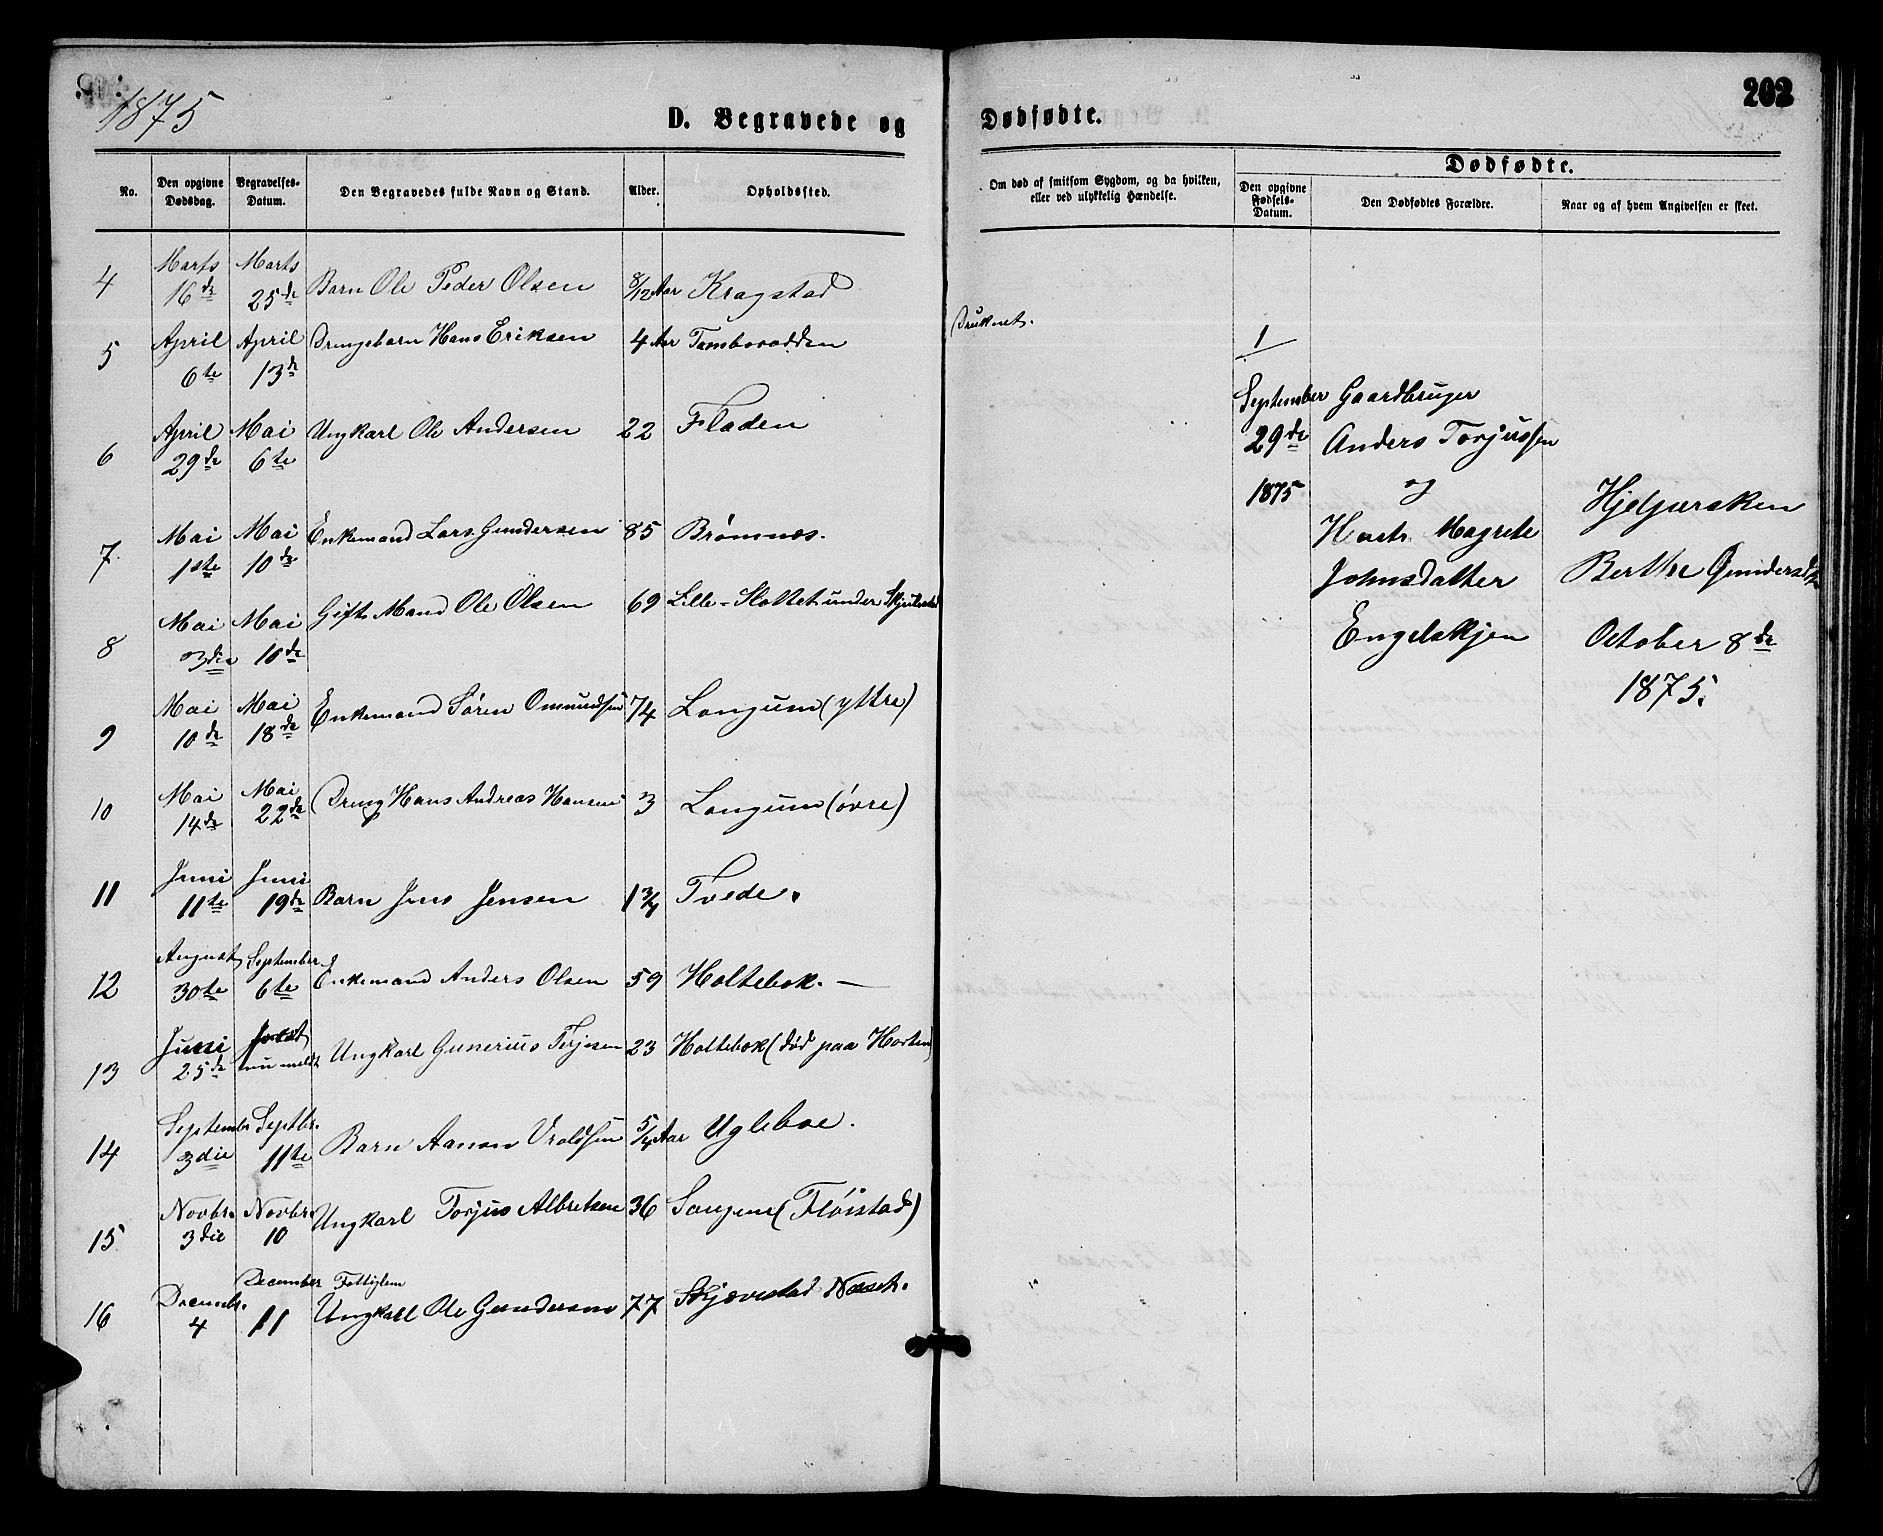 1875
202
D. Begravede og Dødfødte.
No.
Den opgivne Dødsdag.
Begravelses-Datum.
Den Begravedes fulde Navn og Stand.
Alder.
Opholdssted.
Om død af smitsom Sygdom, og da hvilken, eller ved ulykkelig Hændelse.
Dødfødte.
Den opgivne Fødsels-Datum.
Den Dødfødtes Forældre.
Naar og af hvem Angivelsen er skeet.
4 Marts 16de Marts 25de Barn Ole Peder Olsen 8/12 Aar Kragstad
5 April 6te April 13de Drengebarn Hans Eriksen 4 Aar Tambovodden Druknet.
6 April 29de Mai 6te Ungkarl Ole Andersen 22 Fladen
7. Mai 1ste Mai 10de Enkemand Lars Gundersen 85 Brømnæs.
8 Mai 3die Mai 10de Gift Mand Ole Olsen 69 Lille-Slottet under
9 Mai 10de Mai 18de Enkemand Søren Omundsen 74 Longum (yttre)
10 Mai 14de Mai 22de Dreng Hans Andreas Hansen 3 Longum (øvre)
11 Juni 11te Juni 19de Barn Jens Jensen 1 3/4 Tvede.
12 August 30te September 6te Enkemand Anders Olsen 59 Holtebok. —
13 Juni 25de nu meldt Ungkarl Gunerius Terjesen 23 Holtebok (død paa Horten)
14 Septembr 3die Septbr. 11te Barn Aanon Vroldsen 5/4 Aar Ugleboe.
15. Novbr. 3die Novbr. 10 Ungkarl Torjus Albretsen 36 Songene (Fløistad)
16 Decembr. 4 December 11 Fattiglem
Ungkarl Ole Gundersen 77 Skjævestad Næset.
1
September 29de 1875
Gaardbruger
Anders Torjussen
og
Hustr. Magrete
Johnsdatter
Engelskjøn
Hjelpersken
Berthe Gundersdt
October 8de
1875.